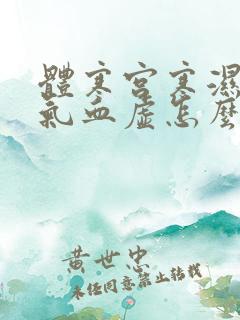 體寒宮寒濕
氣血虛怎麼
黃世忠
未经同意禁止转载